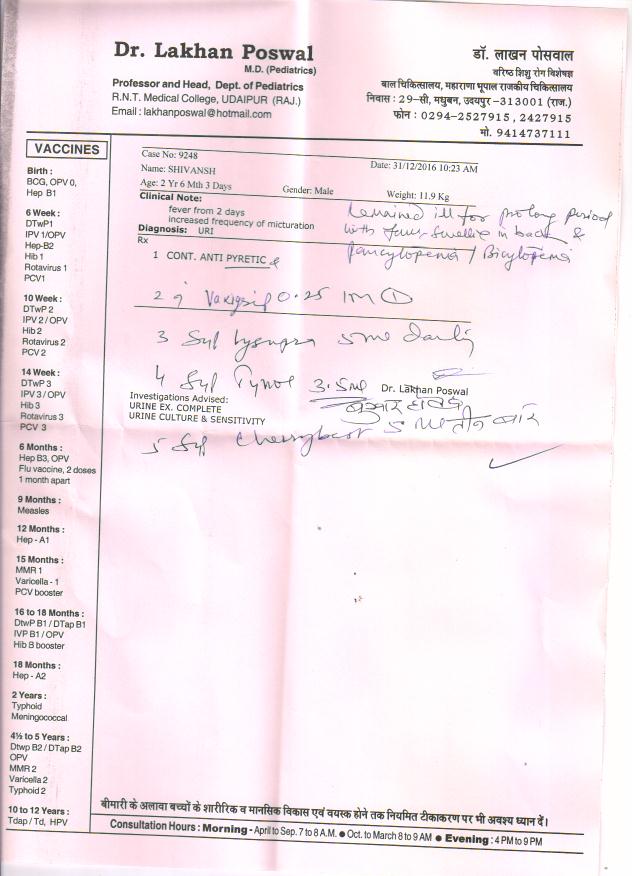 Dr. Lakhan Poswal
M.D. (Pediatrics)
Professor and Head, Dept. of Pediatrics
R.N.T. Medical College, UDAIPUR (RAJ.)
Email : lakhanposwal@hotmail.com
डॉ. लाखन पोसवाल
वरिष्ठ शिशु रोग विशेषज्ञ
बाल चिकित्सालय, महाराणा भूपाल राजकीय चिकित्सालय
निवास : 29-सी, मधुबन, उदयपुर-313001 (राज.)
फोन : 0294-2527915, 2427915
मो. 9414737111
VACCINES
Birth :
BCG, OPV 0,
Hep B1
6 Week :
DTwP1
IPV 1/OPV
Hep-B2
Hib 1
Rotavirus 1
PCV1
10 Week :
DTwP 2
IPV 2 / OPV
Hib 2
Rotavirus 2
PCV 2
14 Week :
DTwP 3
IPV 3 / OPV
Hib 3
Rotavirus 3
PCV 3
6 Months :
Hep B3, OPV
Flu vaccine, 2 doses
1 month apart
9 Months :
Measles
12 Months :
Hep - A1
15 Months :
MMR 1
Varicella - 1
PCV booster
16 to 18 Months :
DtwP B1 / DTap B1
IVP B1 / OPV
Hib B booster
18 Months :
Hep - A2
2 Years :
Typhoid
Meningococcal
4½ to 5 Years :
Dtwp B2 / DTap B2
OPV
MMR 2
Varicella 2
Typhoid 2
10 to 12 Years :
Tdap / Td, HPV
Case No: 9248
Date: 31/12/2016 10:23 AM
Name: SHIVANSH
Age: 2 Yr 6 Mth 3 Days
Gender: Male
Weight: 11.9 Kg
Clinical Note:
fever from 2 days
increased frequency of micturation
Diagnosis: URI
Remained ill for prolong period
with fever swelling in back &
pancytopenia / Bicytopenia
Rx
1 CONT. ANTI PYRETIC
2 0.25 IM ①
3 Syp 5 ml daily
4 Syp 3.5 ml
Dr. Lakhan Poswal
Investigations Advised:
URINE EX. COMPLETE
URINE CULTURE & SENSITIVITY
5 Syp 5 तीन बार
बीमारी के अलावा बच्चों के शारीरिक व मानसिक विकास एवं वयस्क होने तक नियमित टीकाकरण पर भी अवश्य ध्यान दें।
Consultation Hours : Morning - April to Sep. 7 to 8 A.M. ● Oct. to March 8 to 9 AM ● Evening : 4 PM to 9 PM